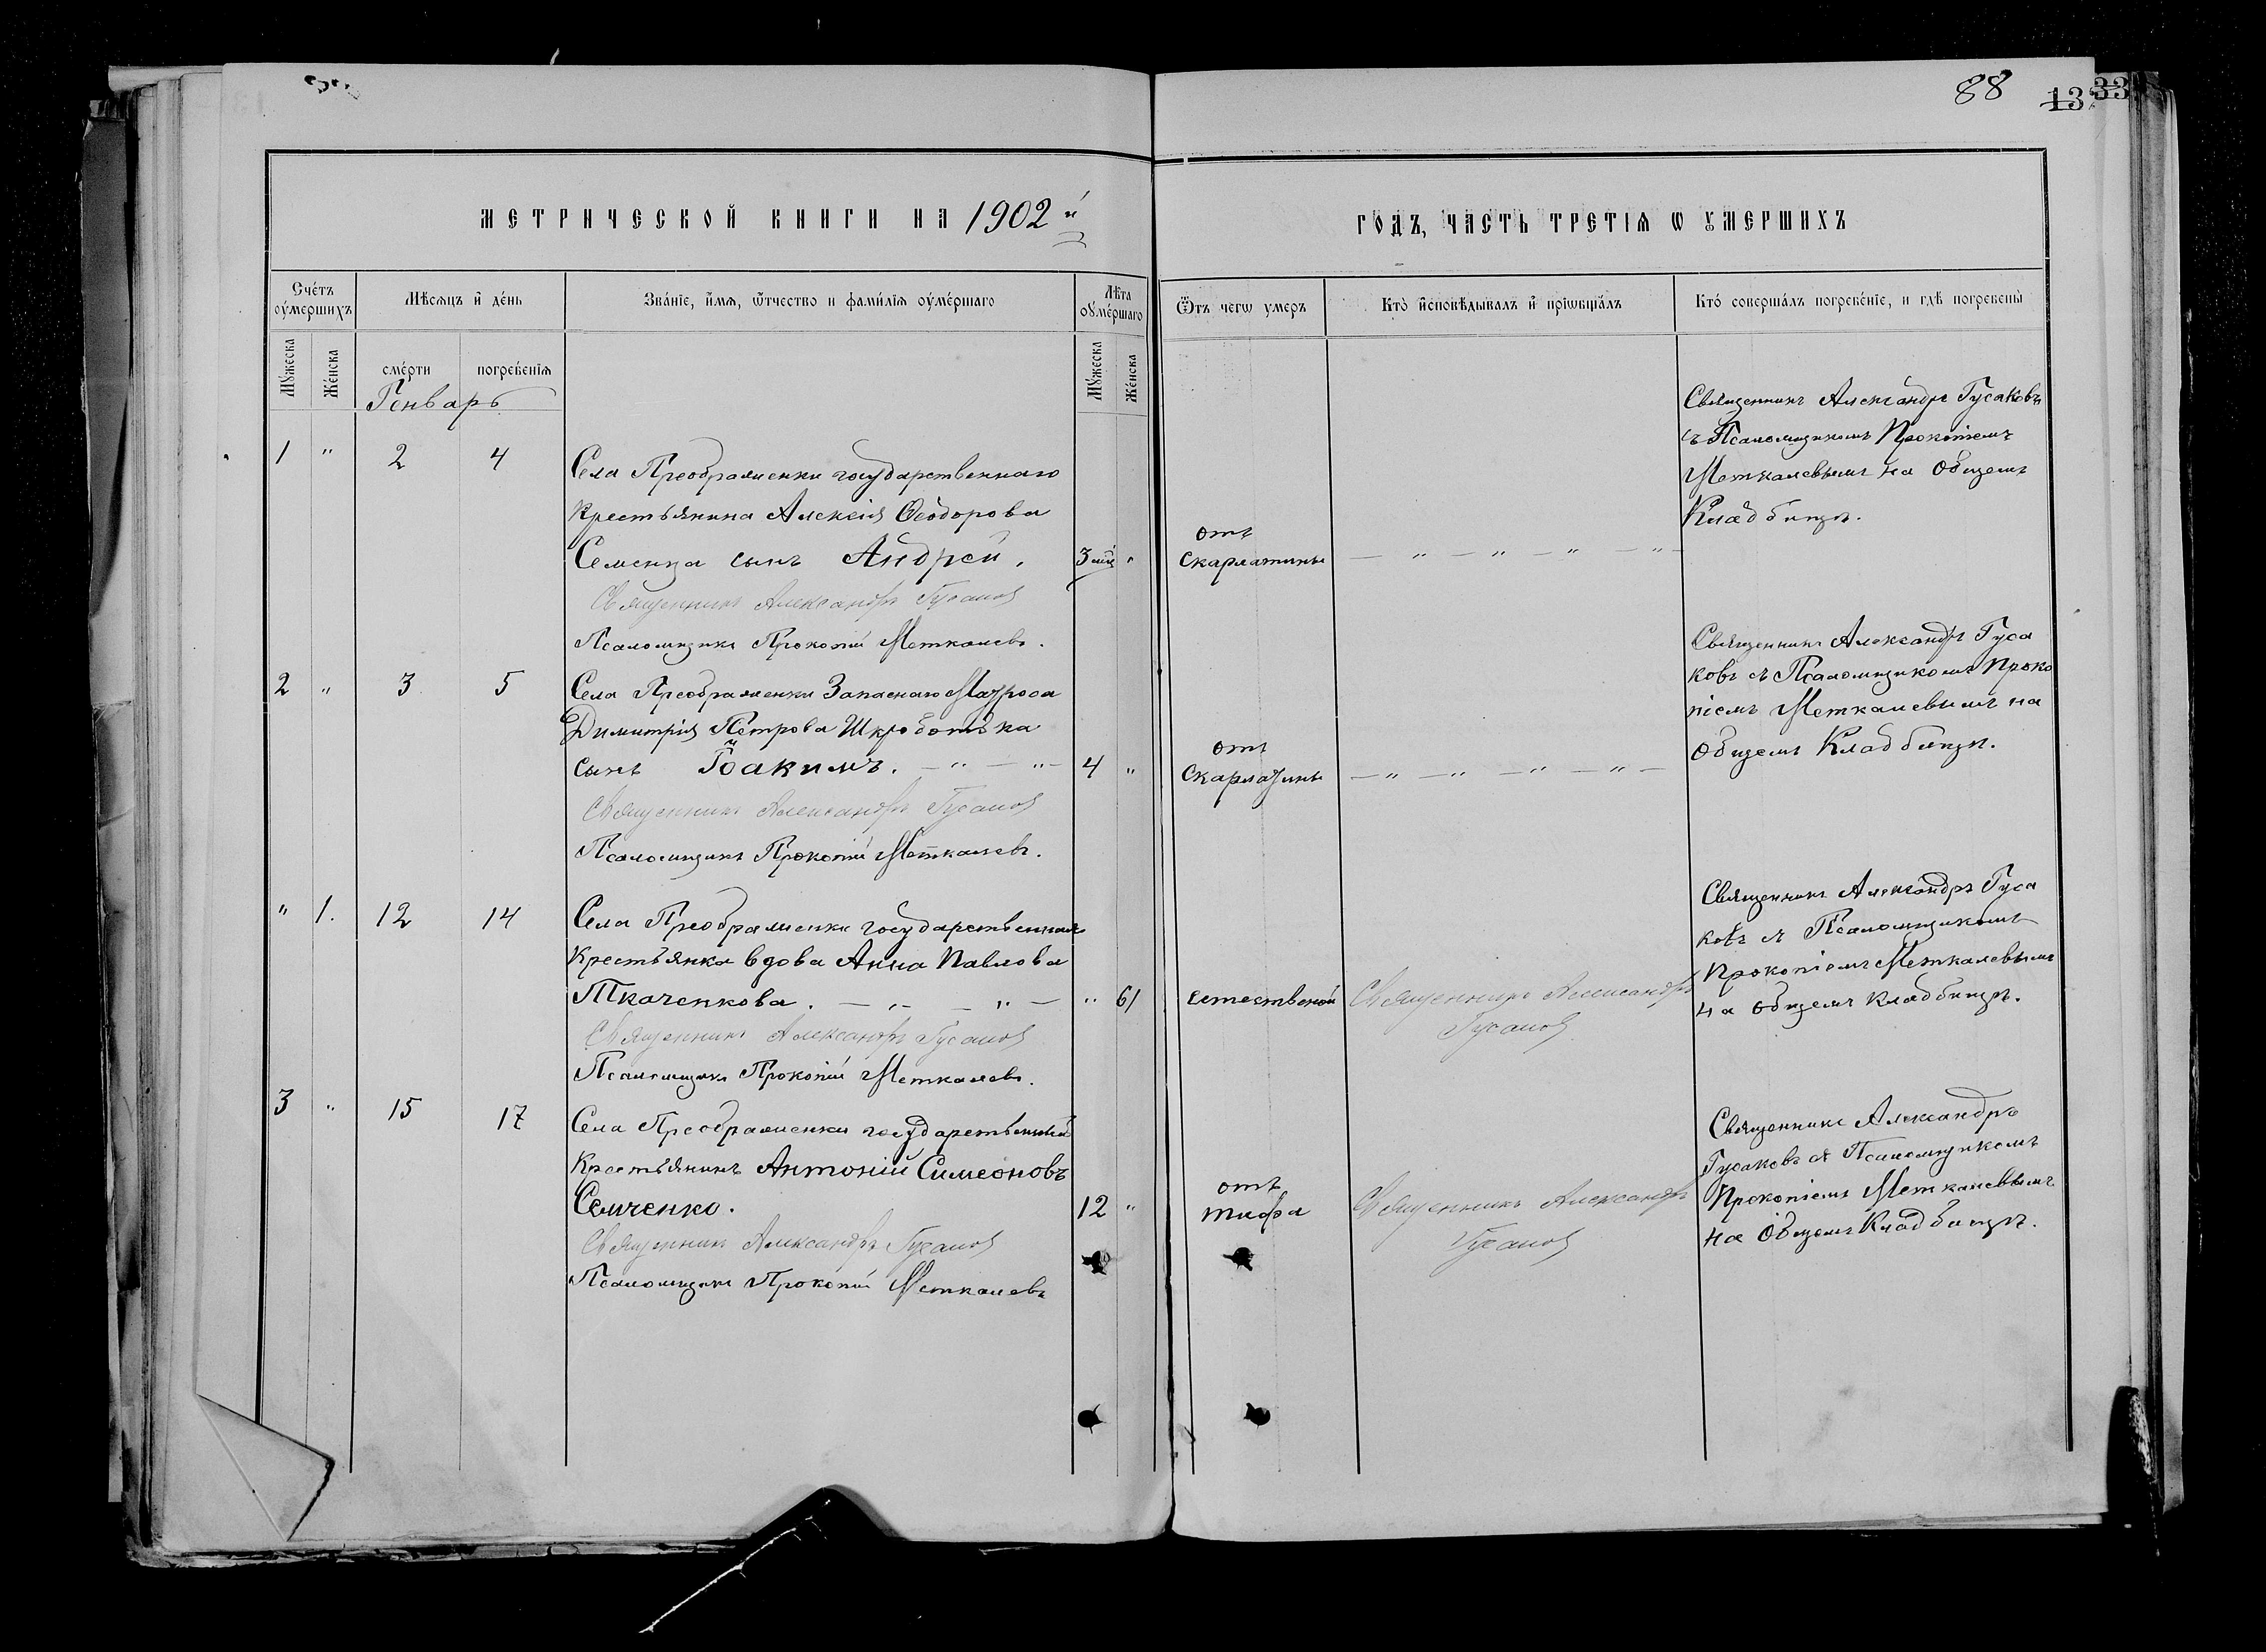 88
13
33
МЕТРИЧЕСКОЙ КНИГИ НА 1902й
ГОДЪ, ЧАСТЬ ТРЕТІѦ Ѡ ᲈУМЕРШИХЪ
Счетъ оумершихъ
Мѣсяцъ и день
Званіе, имя, ѿчество и фамилія оумершаго
Лѣта оумершаго
Ѿтъ чегѡ умеръ
Кто исповѣдывалъ и пріѡбщалъ
Кто совершалъ погребеніе, и гдѣ погребены
Мужеска
Женска
смерти
погребенія
Мужеска
Женска
Генварь
1 " 2 4
Села Преображенки государственнаго
Крестьянина Алексія Ѳеодорова
Семенца сынъ Андрей.
3 "
отъ
скарлатины
— " — " — " — " —
Священникъ Александръ Гусаковъ
съ Псаломщикомъ Прокопіемъ
Меткалевымъ на Общемъ
Кладбищѣ.
Священникъ Александръ Гусаковъ
Псаломщикъ Прокопій Меткалевъ.
2 " 3 5
Села Преображенки Запаснаго Матроса
Димитрія Петрова Шкроботька
сынъ Іоакимъ. — " — " —
4 "
отъ
Скарлатины
— " — " — " — " —
Священникъ Александръ Гуса
ковъ съ Псаломщикомъ Проко
піемъ Меткалевымъ на
общемъ Кладбищѣ.
Священникъ Александръ Гусаковъ
Псаломщикъ Прокопій Меткалевъ.
" 1. 12 14
Села Преображенки государственная
Крестьянка вдова Анна Павлова
Ткаченкова. — " — " —
" 61
естественной
Священникъ Александръ
Гусаковъ
Священникъ Александръ Гуса
ковъ съ Псаломщикомъ
Прокопіемъ Меткалевымъ
на общемъ кладбищѣ.
Священникъ Александръ Гусаковъ
Псаломщикъ Прокопій Меткалевъ.
3 " 15 17
Села Преображенки государственный
Крестьянинъ Антоній Симеоновъ
Семченко.
12 "
отъ
тифа
Священникъ Александръ
Гусаковъ
Священникъ Александръ
Гусаковъ съ Псаломщикомъ
Прокопіемъ Меткалевымъ
на Общемъ Кладбищѣ.
Священникъ Александръ Гусаковъ
Псаломщикъ Прокопій Меткалевъ